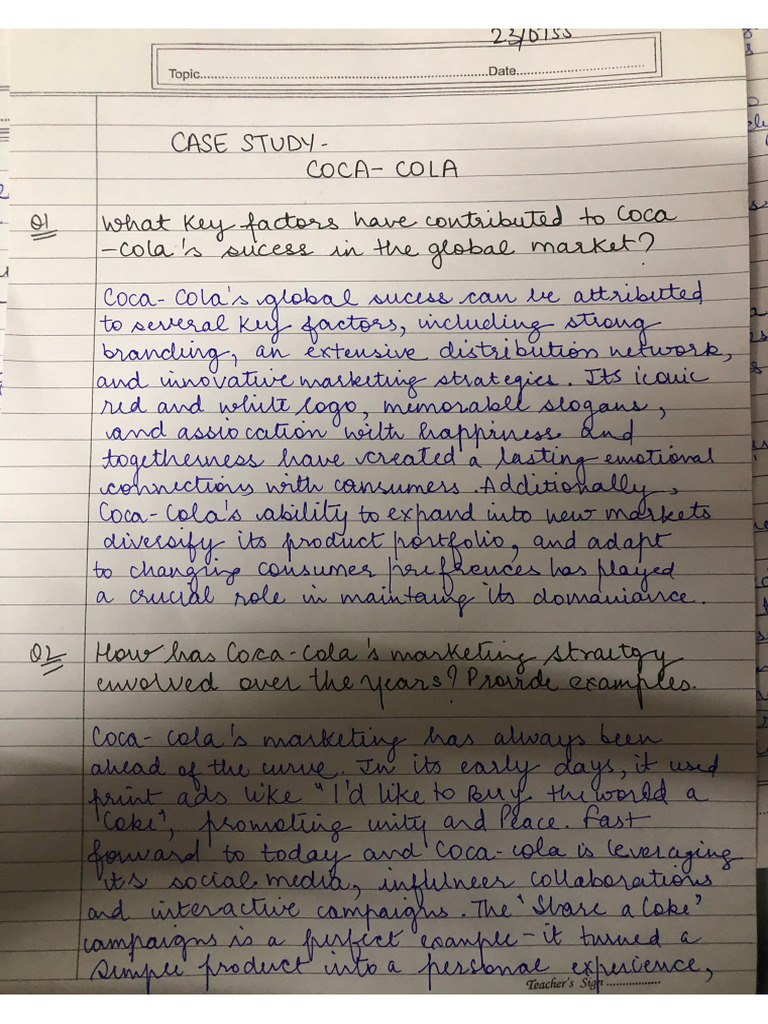 23/0155
Topic.....................Date.....................
CASE STUDY-
COCA- COLA
Q1 What key factors have contributed to Coca
-Cola's sucess in the global market?
Coca- Cola's global sucess can be attributed
to several key factors, including strong
branding, an extensive distribution network,
and innovative marketing strategies. Its iconic
red and white logo, memorable slogans,
and assiocation with happriness and
togetherness have created a lasting emotional
connections with consumers. Additionally,
Coca-Cola's ability to expand into new markets
diversify its product portfolio, and adapt
to changing consumer preferences has played
a crucial role in maintaing its domaniance.
Q2 How has Coca-Cola's marketing straetgy
envolved over the years? Provide examples.
Coca- cola's marketing has always been
ahead of the curve. In its early days, it used
print ads like "I'd like to Buy the world a
Coke", promoting unity and Peace. Fast
forward to today and Coca-cola is leveraging
its social media, infulneer collaborations
and interactive campaigns. The 'Share a Coke'
campaigns is a perfect example - it turned a
simple product into a personal experience,
Teacher's Sign .................